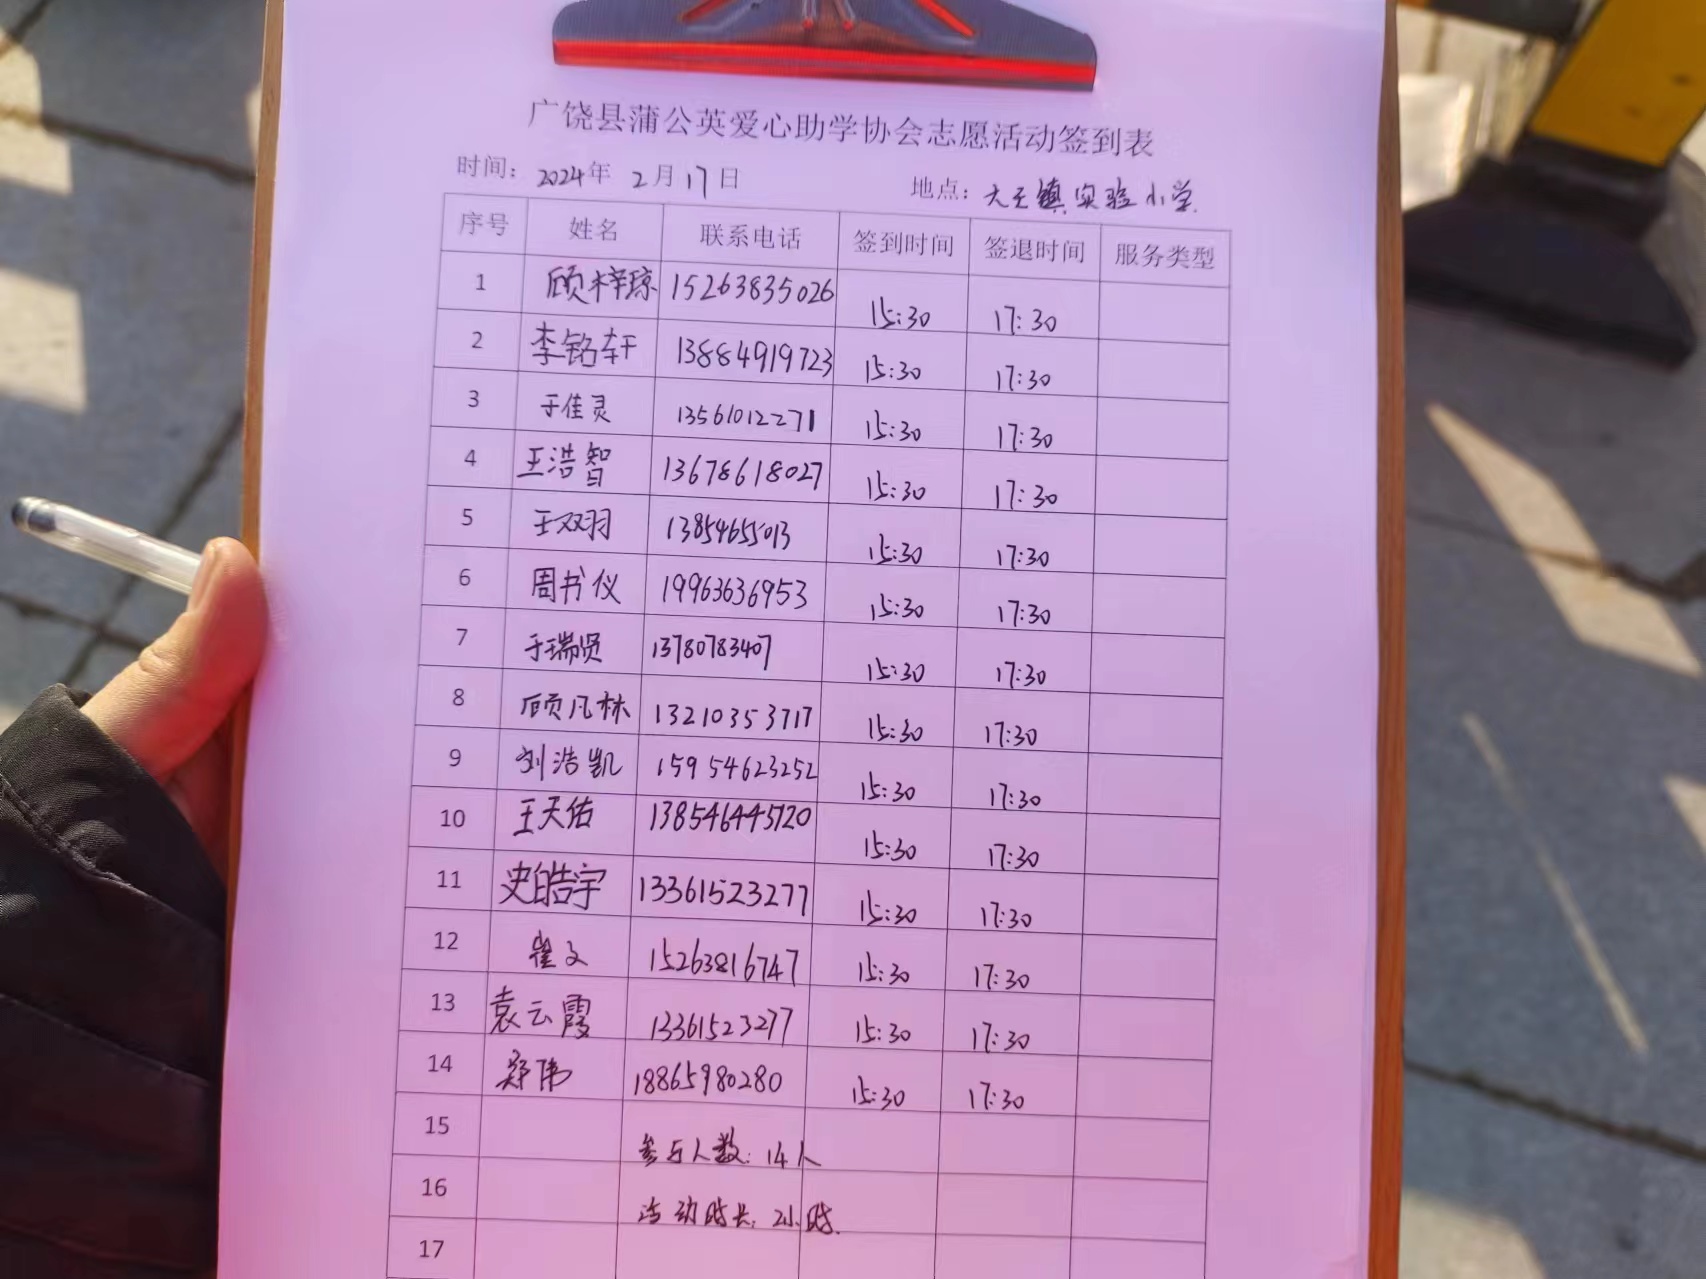 广饶县蒲公英爱心助学协会志愿活动签到表
时间：2024年 2月17日 地点：大王镇实验小学
序号 姓名 联系电话 签到时间 签退时间 服务类型
1 顾梓琼 15263835026 15:30 17:30
2 李铭轩 13884919723 15:30 17:30
3 于佳灵 13561012271 15:30 17:30
4 王浩智 13678618027 15:30 17:30
5 王双羽 13854655013 15:30 17:30
6 周书仪 19963636953 15:30 17:30
7 于瑞贤 13780783407 15:30 17:30
8 顾凡林 13210353717 15:30 17:30
9 刘浩凯 15954623252 15:30 17:30
10 王天佑 15:30 17:30
11 史皓宇 13361523277 15:30 17:30
12 崔文 15263816747 15:30 17:30
13 袁云霞 13361523277 15:30 17:30
14 郑伟 18865980280 15:30 17:30
15 参与人数：14人
16 活动时长：2小时
17